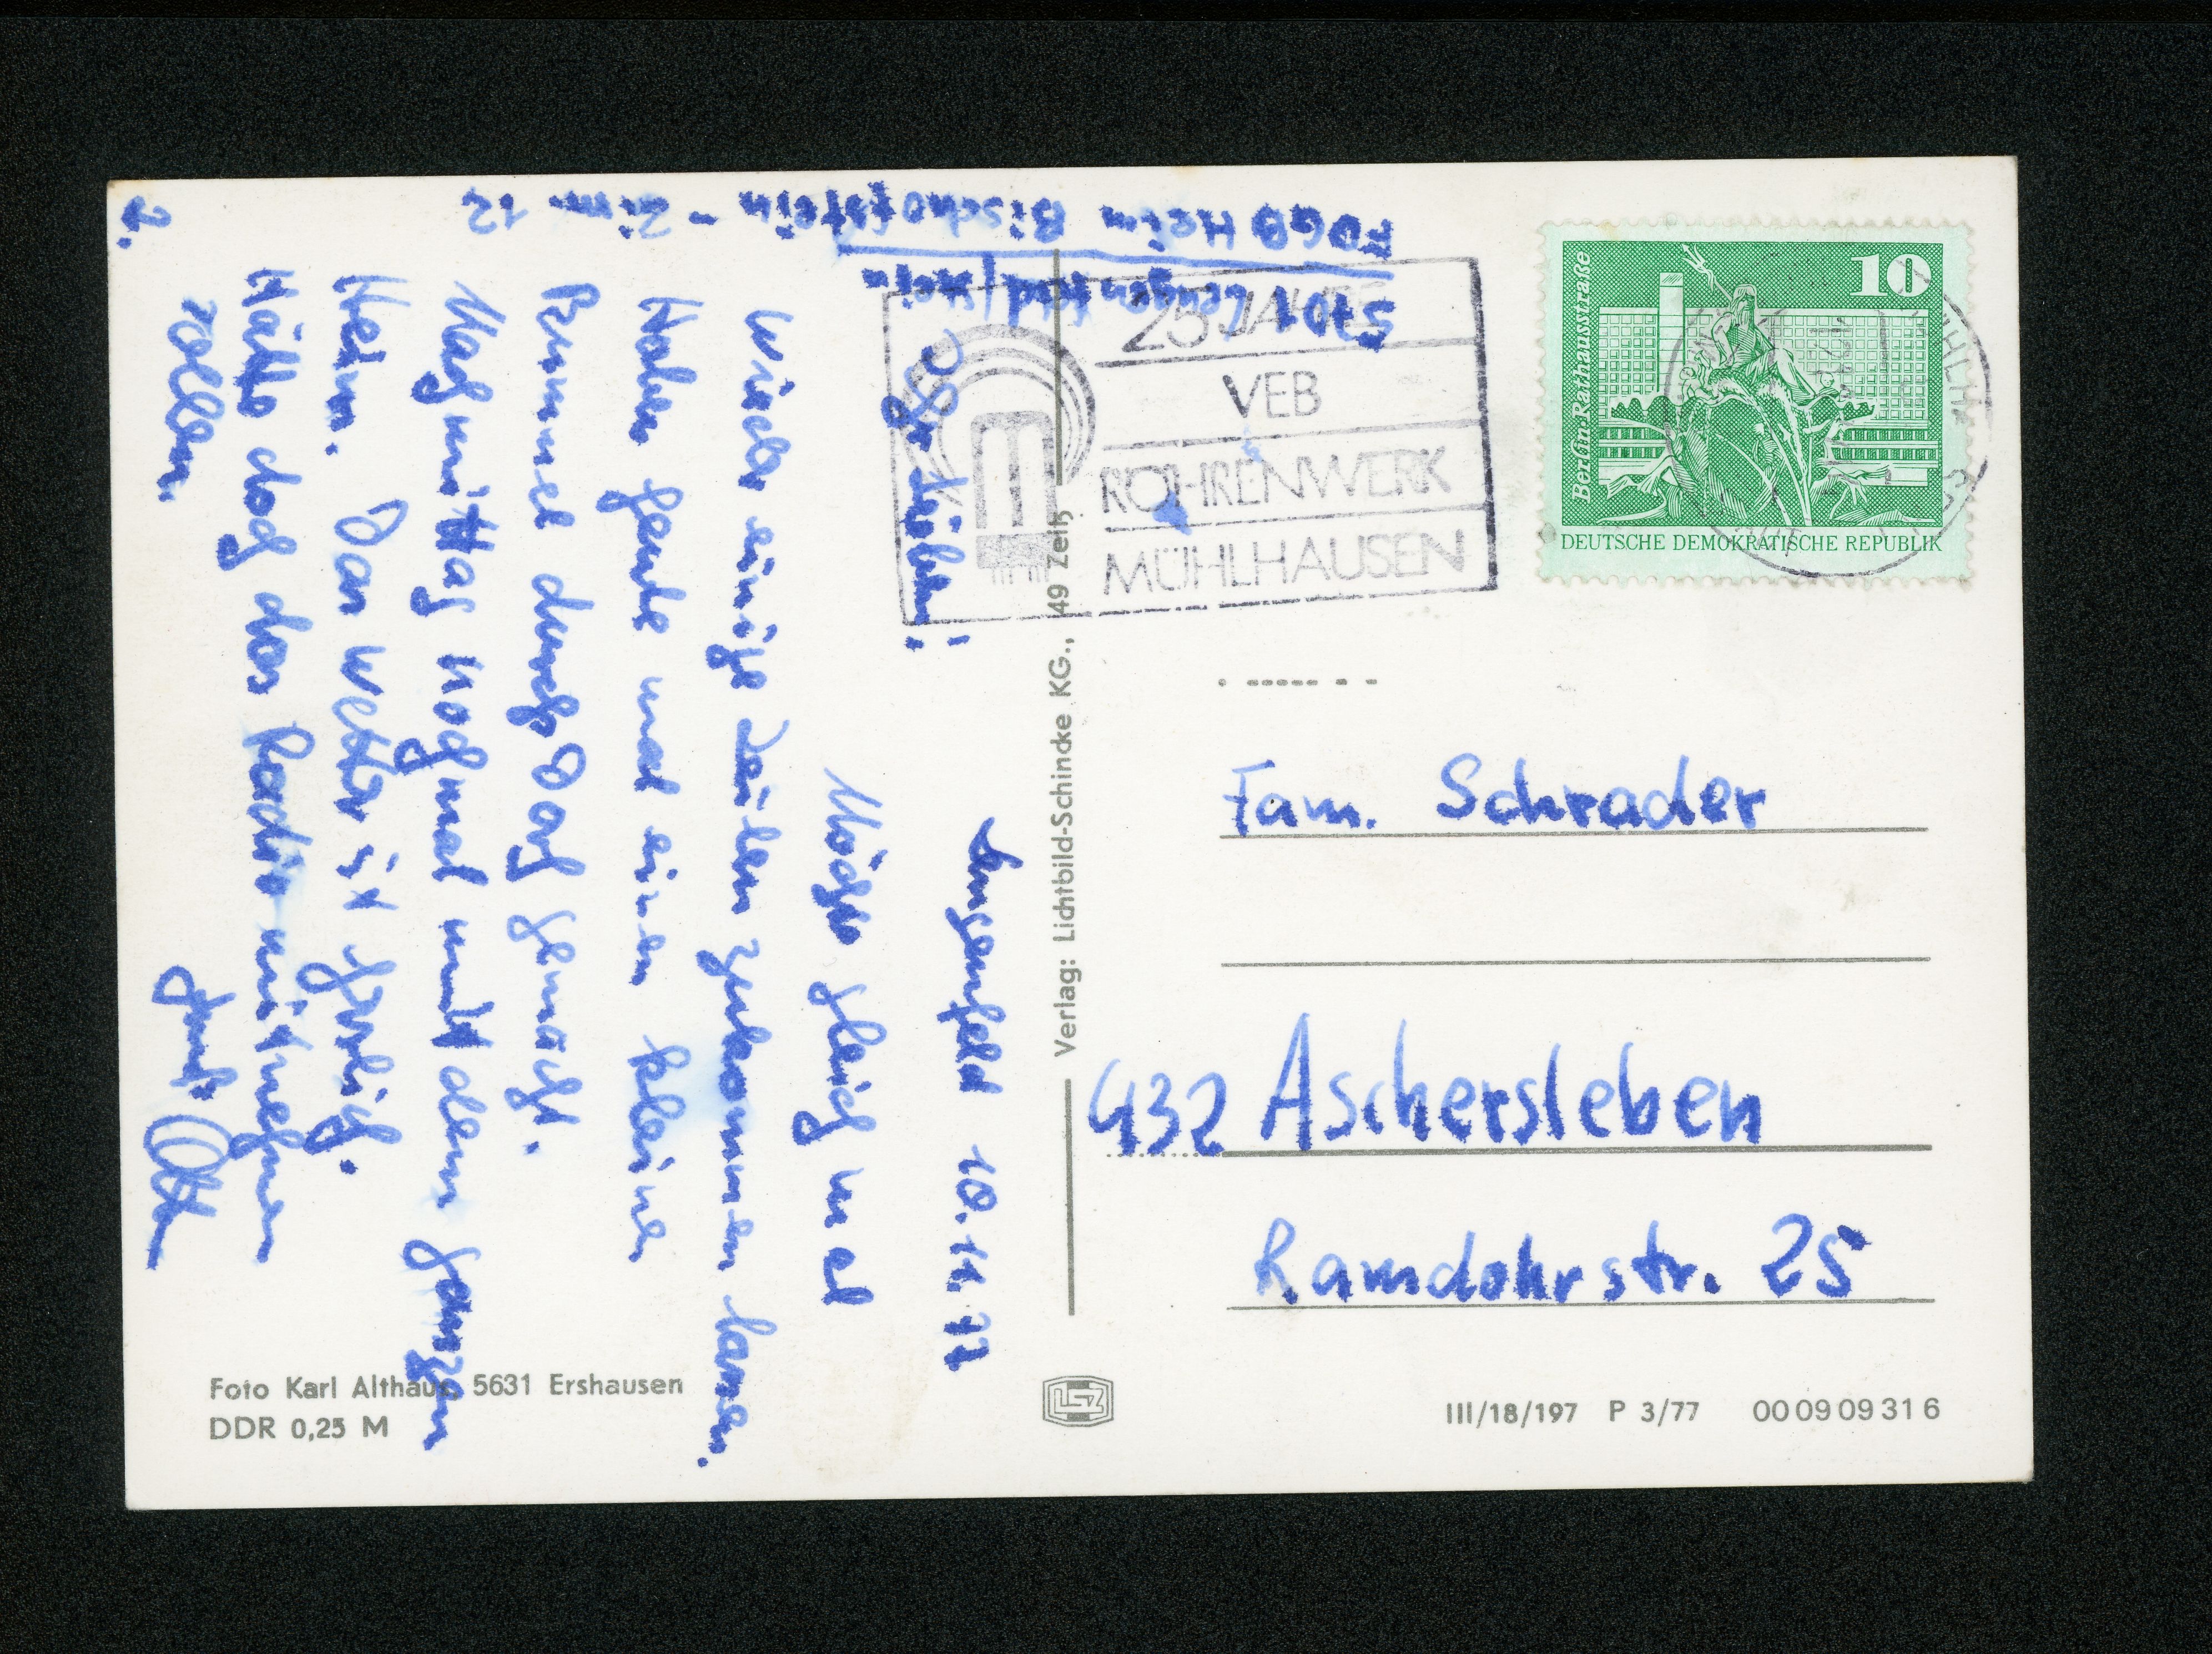 FDGB Heim Bischofstein - Zim. 12
5701 Lengenfeld/Stein
2.
Lengenfeld 10.11.77
Ihr Lieben!
Möchte gleich mal
wieder einige Zeilen zukommen lassen.
Haben heute mal einen kleinen
Bummel durchs Dorf gemacht.
Nachmittag nochmal mit dem ganzen
Heim. Das Wetter ist herrlich.
Hätte doch das Radio mitnehmen
sollen.
25 JAHRE
VEB
RÖHRENWERK
MÜHLHAUSEN
10
Berlin-Rathausstraße
DEUTSCHE DEMOKRATISCHE REPUBLIK
Fam. Schrader
432 Aschersleben
Ramdohrstr. 25
Verlag: Lichtbild-Schincke KG., 49 Zeitz
Foto Karl Althaus, 5631 Ershausen
DDR 0,25 M
LSZ
III/18/197 P 3/77 00 09 09 31 6